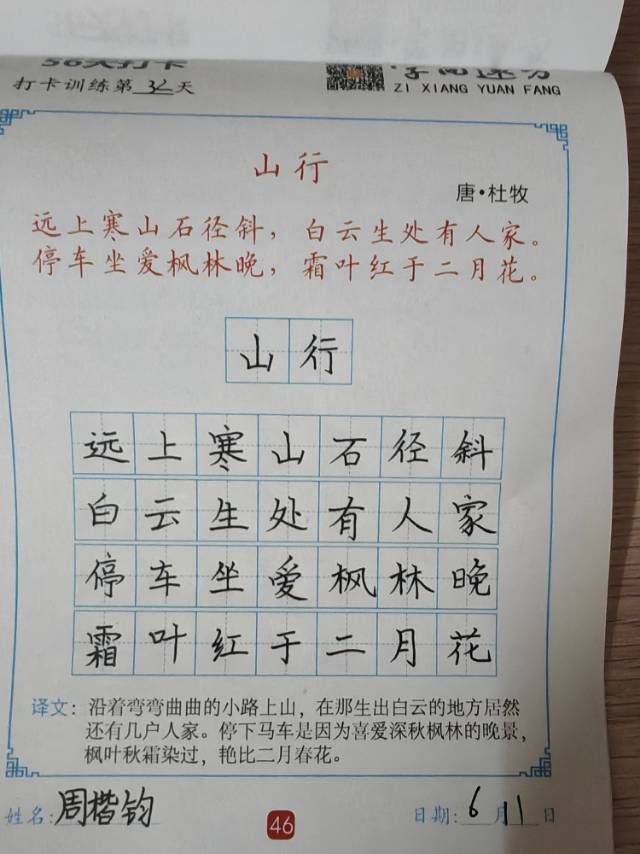 打卡训练第32天
ZI XIANG YUAN FANG
山行
唐·杜牧
远上寒山石径斜，白云生处有人家。
停车坐爱枫林晚，霜叶红于二月花。
山行
远上寒山石径斜
白云生处有人家
停车坐爱枫林晚
霜叶红于二月花
译文：沿着弯弯曲曲的小路上山，在那生出白云的地方居然
还有几户人家。停下马车是因为喜爱深秋枫林的晚景，
枫叶秋霜染过，艳比二月春花。
姓名：周楷钧 46 日期：6月11日